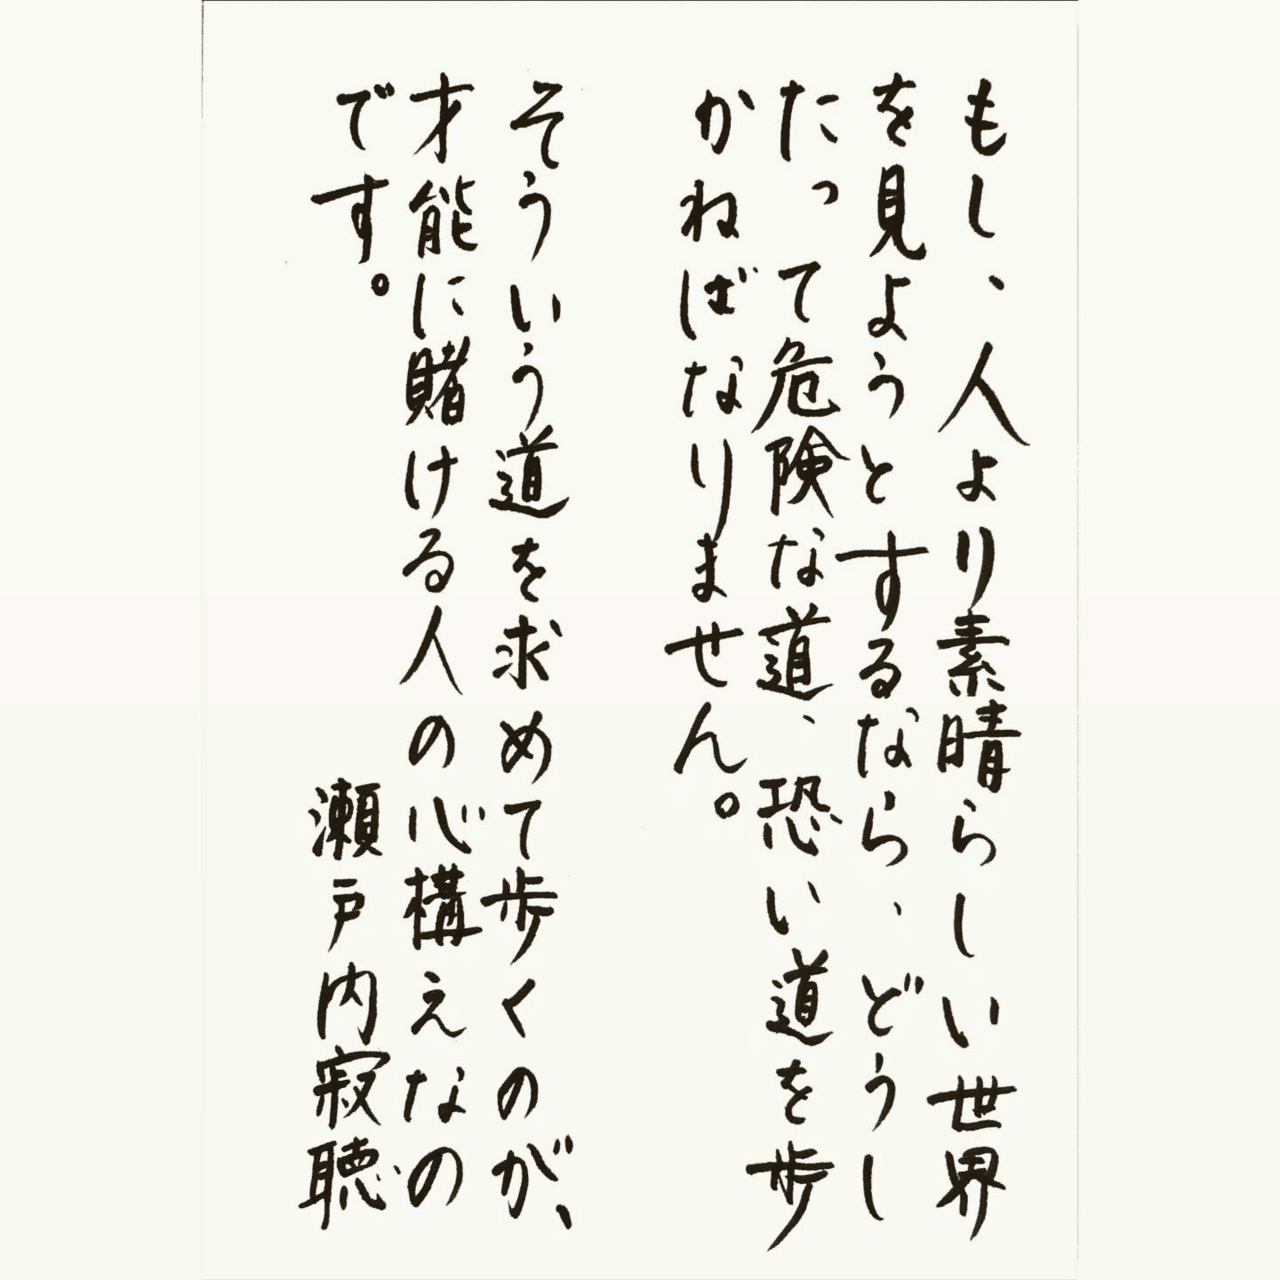 もし、人より素晴らしい世界
を見ようとするなら、どうし
たって危険な道、恐い道を歩
かねばなりません。
そういう道を求めて歩くのが、
才能に賭ける人の心構えなの
です。
瀬戸内寂聴